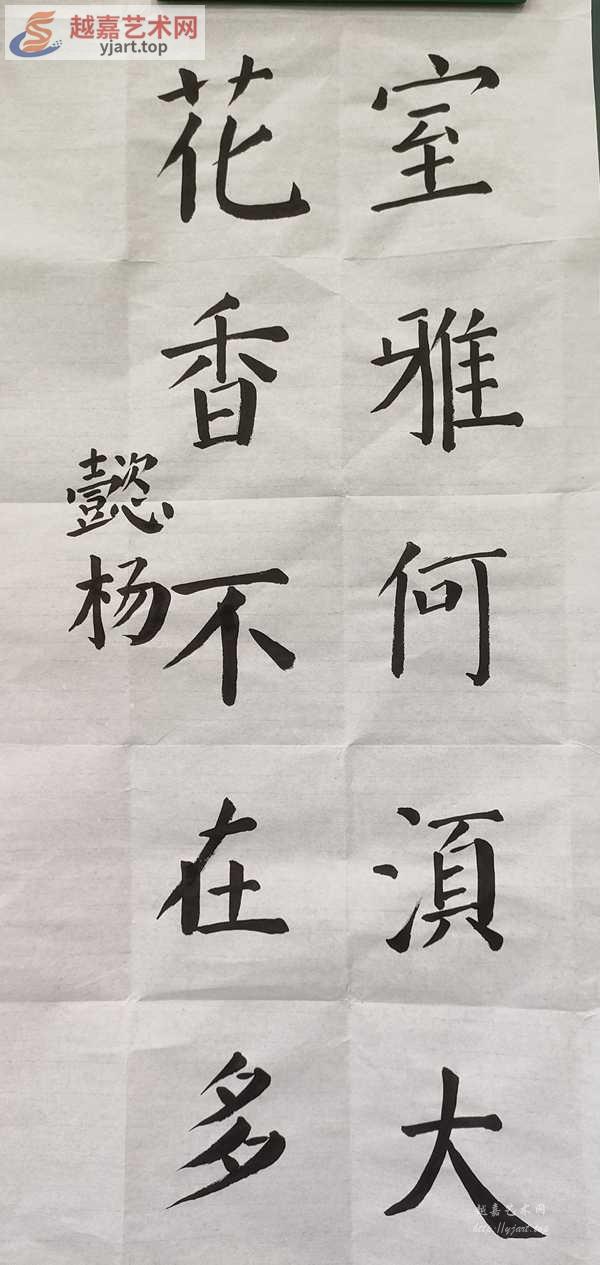 越嘉艺术网
yjart.top
室雅何湏大
花香不在多
懿杨
越嘉艺术网
http://yjart.top